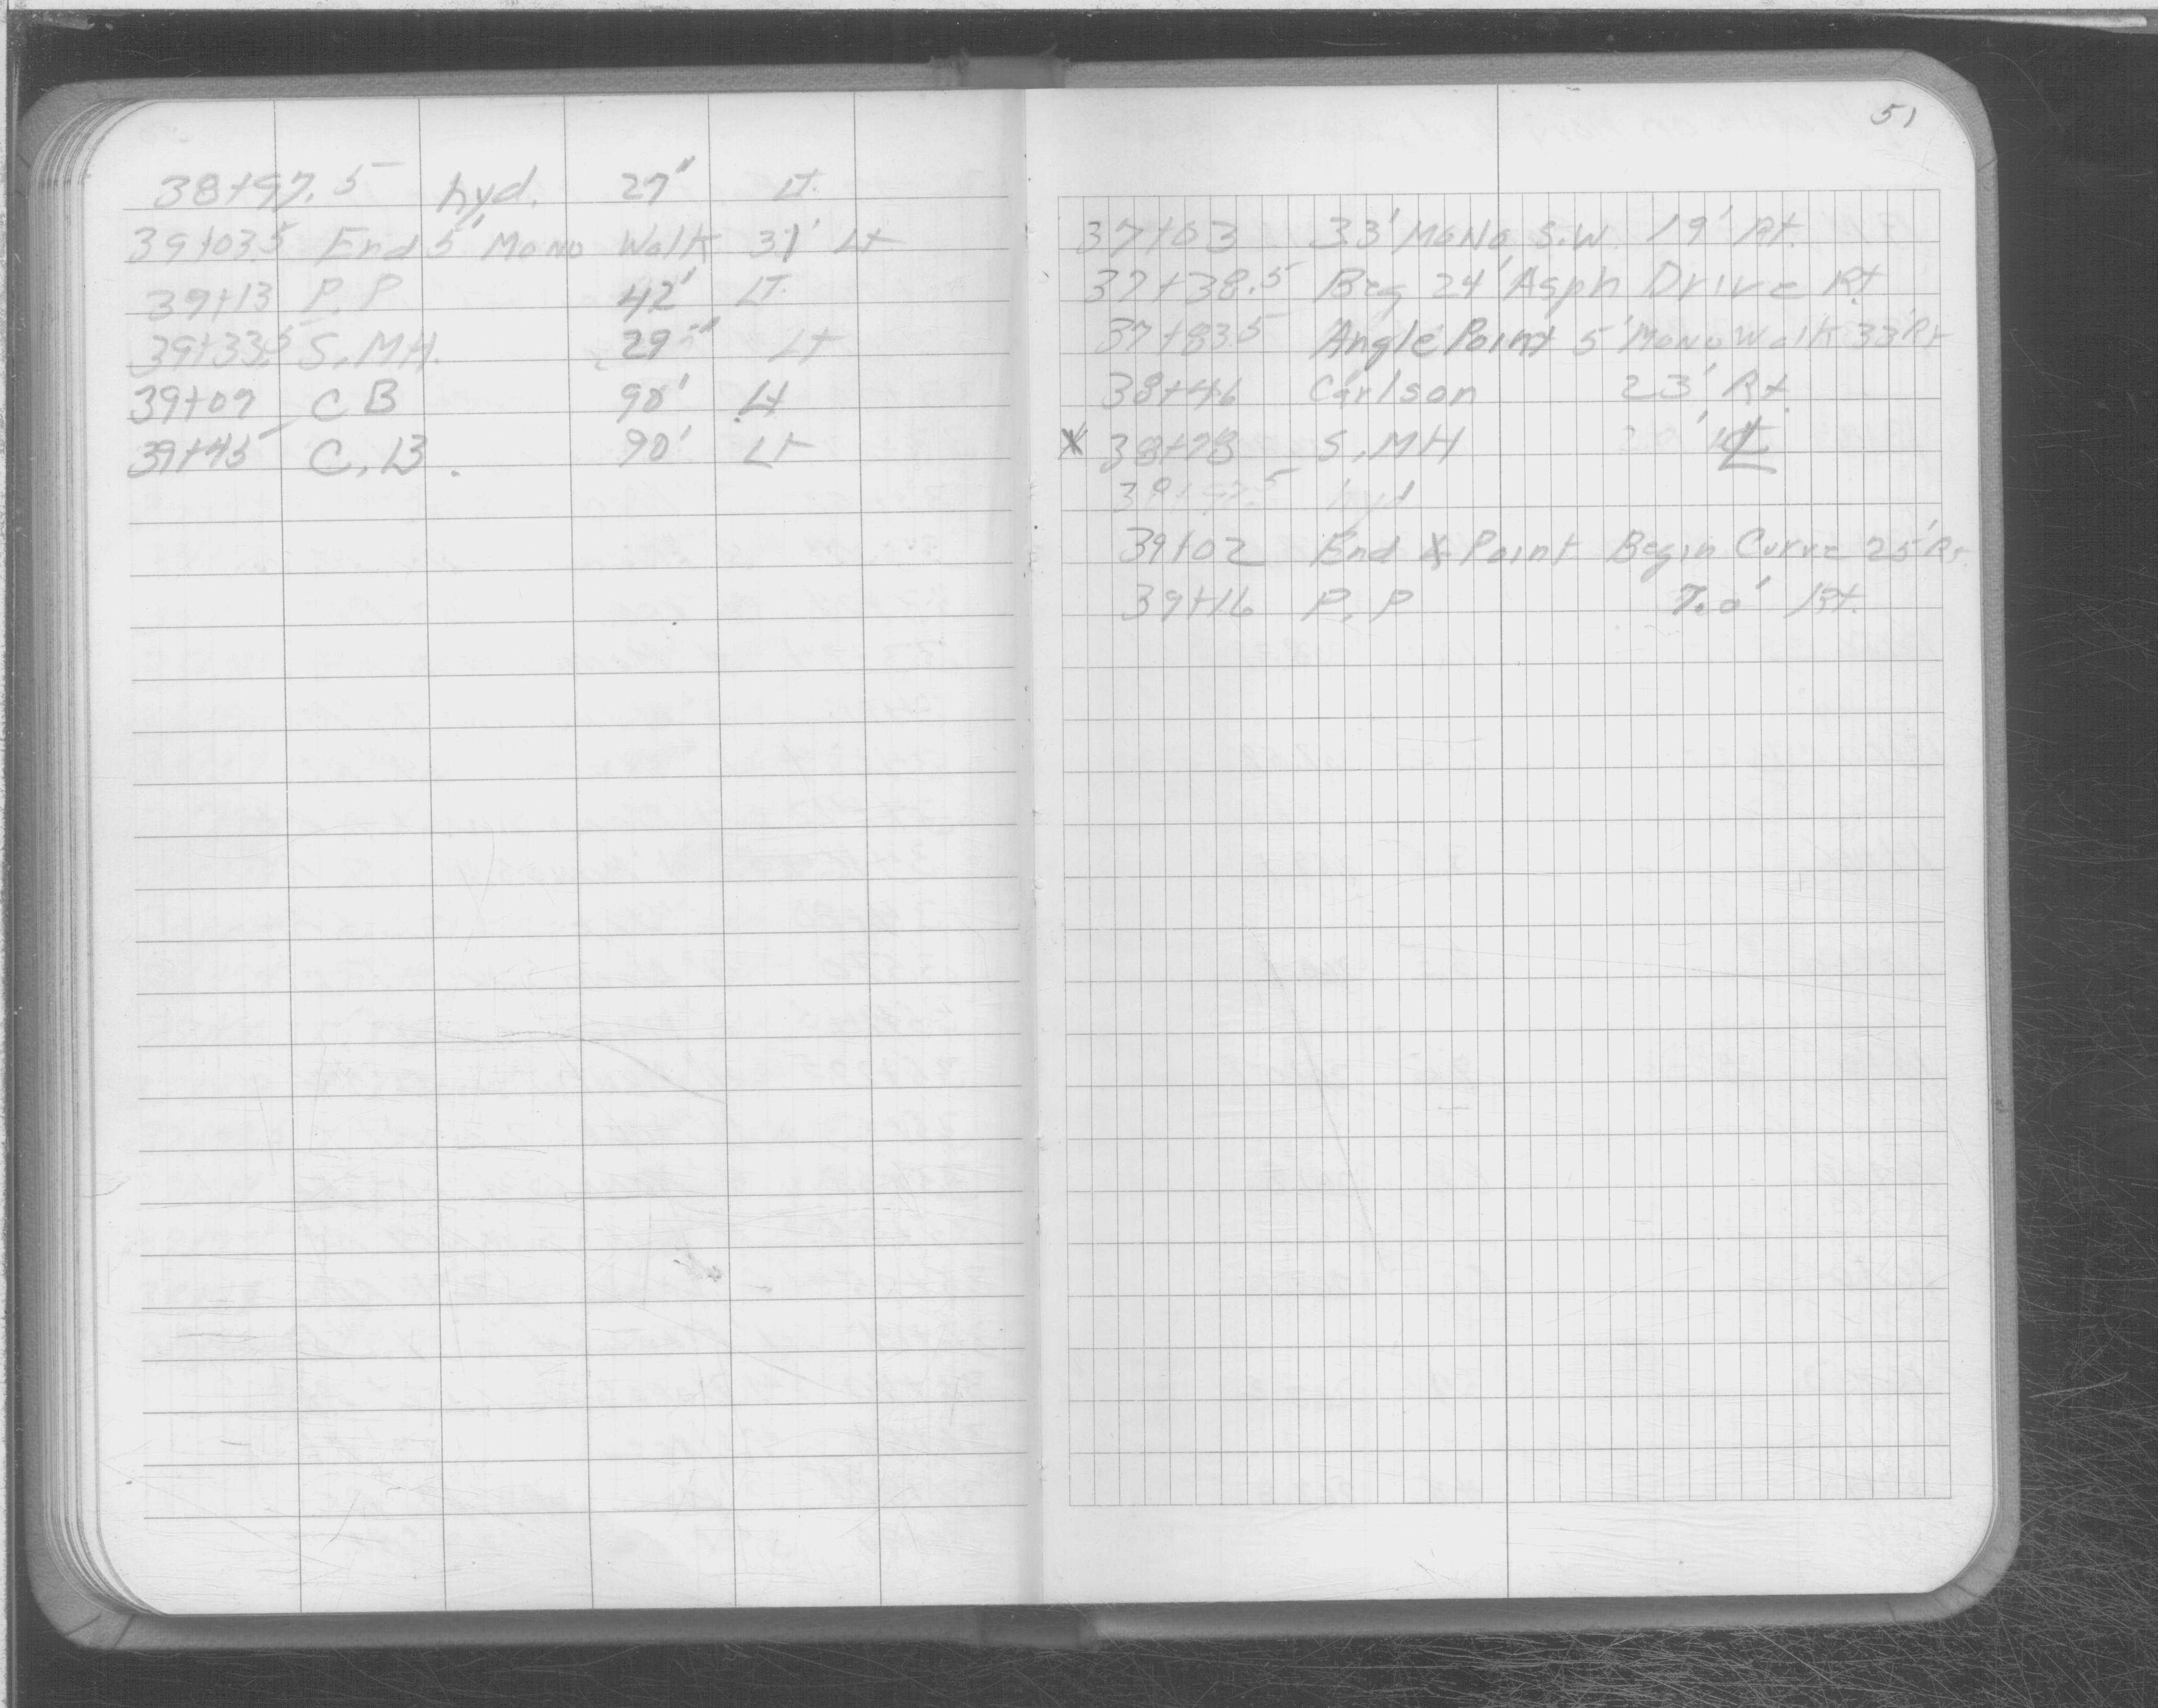 38+97.5 hyd. 27' Lt.
39+03.5 End 5' Mono Walk 31' Lt
39+13 P.P 42' Lt.
39+33.5 S.MH. 29' Lt
39+07 CB 90' Lt
39+45 C.B. 90' Lt
51
37+03 33' Mono S.W. 19' Rt.
37+38.5 Beg 24' Asph Drive Rt
37+83.5 Angle Point 5' Mono Walk 33' Rt
38+46 Carlson 23' Rt.
X 38+78 S.MH
hyd
39+02 End X Point Begin Curve 25' Rt
39+16 P.P 7.0' Rt.